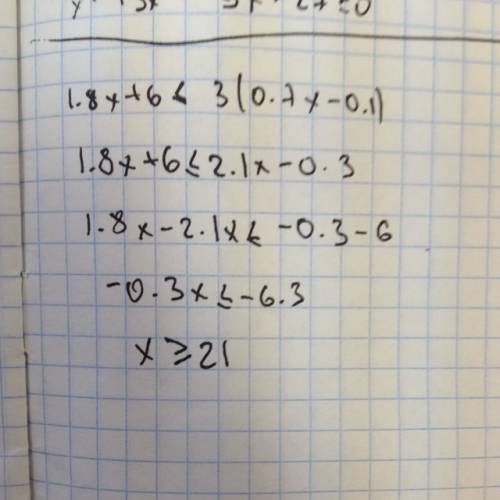 1.8x+6≤ 3(0.7x-0.1)
1.8x+6≤2.1x-0.3
1.8x-2.1x≤ -0.3-6
-0.3x≤-6.3
x≥21